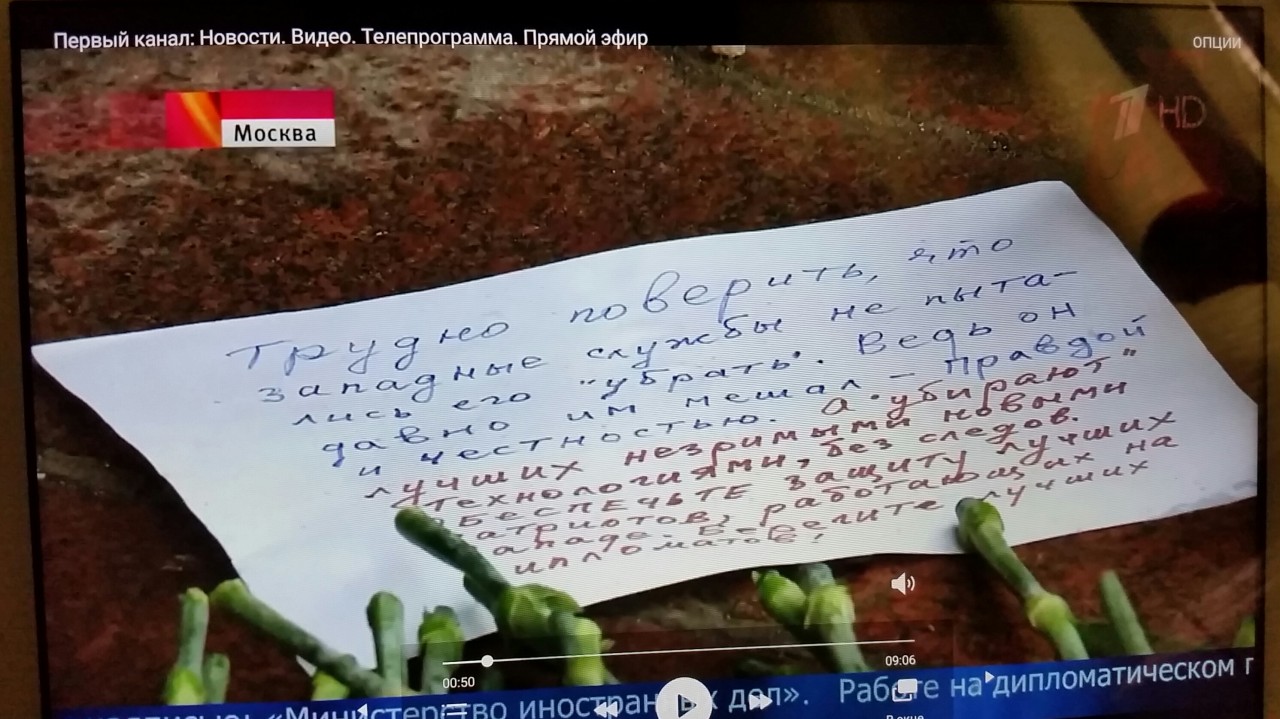 Первый канал: Новости. Видео. Телепрограмма. Прямой эфир
опции
Москва
HD
Трудно поверить, что
западные службы не пыта-
лись его "убрать". Ведь он
давно им мешал - правдой
и честностью. А "убирают"
лучших незримыми новыми
технологиями, без следов.
ОБЕСПЕЧЬТЕ защиту лучших
атриотов, работающих на
ападе. лучших
ипломатов!
00:50
09:06
«Министерство иностранных дел». Работе на дипломатическом